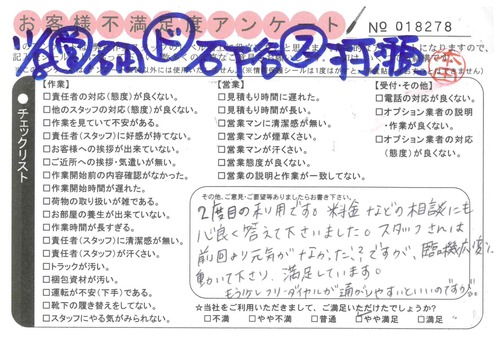 お客様不満足度アンケート
No 018278
【作業】
□責任者の対応(態度)が良くない。
□他のスタッフの対応(態度)が良くない。
□作業を見ていて不安がある。
□責任者(スタッフ)に好感が持てない。
□お客様への挨拶が出来ていない。
□ご近所への挨拶・気遣いが無い。
□作業開始前の内容確認がなかった。
□作業開始時間が遅れた。
□荷物の取り扱いが雑である。
□お部屋の養生が出来ていない。
□作業時間が長すぎる。
□責任者(スタッフ)に清潔感が無い。
□責任者(スタッフ)が汗くさい。
□トラックが汚い。
□梱包資材が汚い。
□運転が不安(下手)である。
□靴下の履き替えをしてない。
□スタッフにやる気がみられない。
【営業】
□見積もり時間に遅れた。
□見積もり時間が長い。
□営業マンに清潔感が無い。
□営業マンが煙草くさい。
□営業マンが汗くさい。
□営業態度が良くない。
□営業の説明と作業が一致してない。
【受付・その他】
□電話の対応が良くない。
□オプション業者の説明
・作業が良くない。
□オプション業者の対応
(態度)が良くない。
チェックリスト
その他、ご意見・ご要望等ありましたらお書き下さい。
2度目の利用です。料金などの相談にも
心良く答えて下さいました。スタッフさんは
前回より元気がなかった、?ですが、臨機応変に
動いて下さり、満足しています。
もう少しフリーダイヤルが通じやすいといいのですが
☆当社をご利用いただきまして、ご満足いただけたでしょうか?
□不満 □やや不満 □普通 □やや満足 □満足